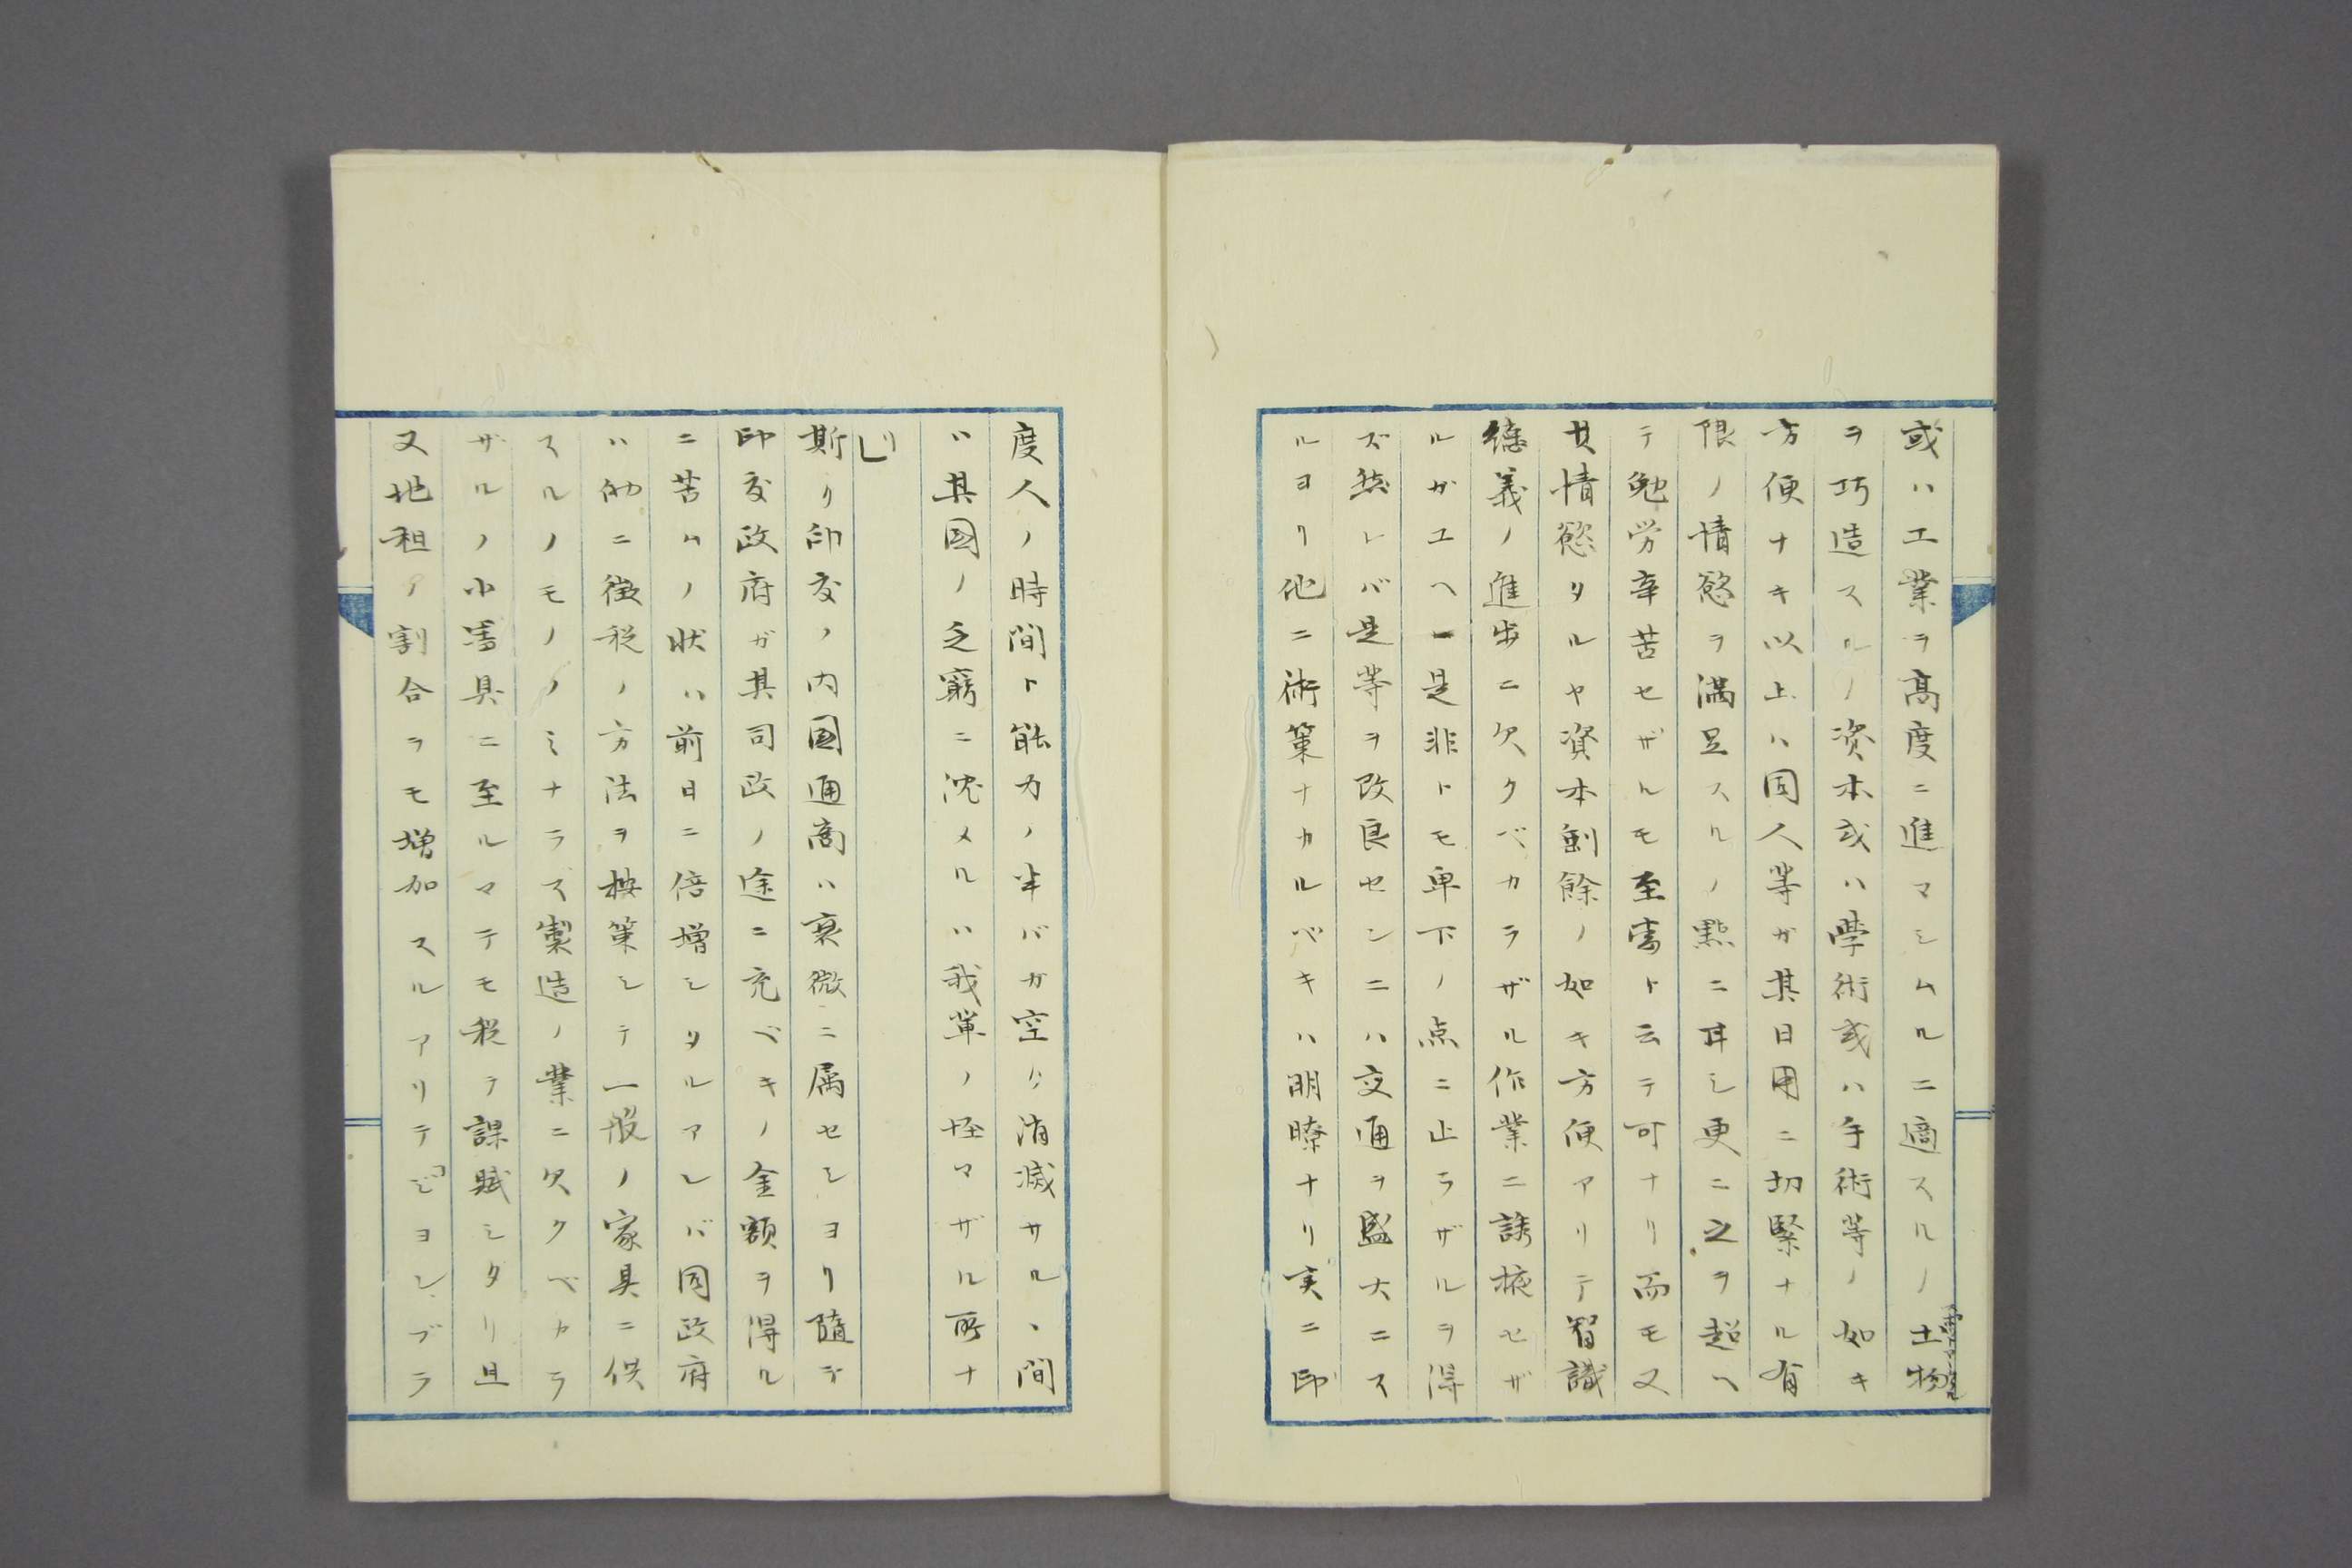 或ハ工業ヲ高度ニ進マシムルニ適スルノ土物
ヲ巧造スルノ資本或ハ學術或ハ手術等ノ如キ
方便ナキ以上ハ国人等ガ其日用ニ切緊ナル有
限ノ情慾ヲ満足スルノ點ニ耳シ更ニ之ヲ超ヘ
テ勉労辛苦セザルモ至當ト云テ可ナリ而モ又
其情慾タルヤ資本剰餘ノ如キ方便アリテ智識
徳義ノ進歩ニ欠クベカラザル作業ニ誘掖セザ
ルガユヘ一是非トモ卑下ノ点ニ止ラザルヲ得
ズ然レバ是等ヲ改良センニハ交通ヲ盛大ニス
ルヨリ他ニ術策ナカルベキハ明瞭ナリ実ニ印
度人ノ時間ト能力ノ半バガ空ク消滅サルヽ間
ハ其國ノ乏窮ニ沈メルハ我輩ノ怪マザル所ナ
リ
斯り印度ノ内國通商ハ衰微ニ属セシヨリ随テ
印度政府ガ其司政ノ途ニ充ベキノ金額ヲ得ル
ニ苦ムノ状ハ前日ニ倍増シタルアレバ同政府
ハ切ニ徴税ノ方法ヲ按策シテ一般ノ家具ニ供
スルノモノノミナラズ製造ノ業ニ欠クベカラ
ザルノ小具ニ至ルマテモ税テ課賦シタリ且
又地租ノ割合ヲモ増加スルアリテ